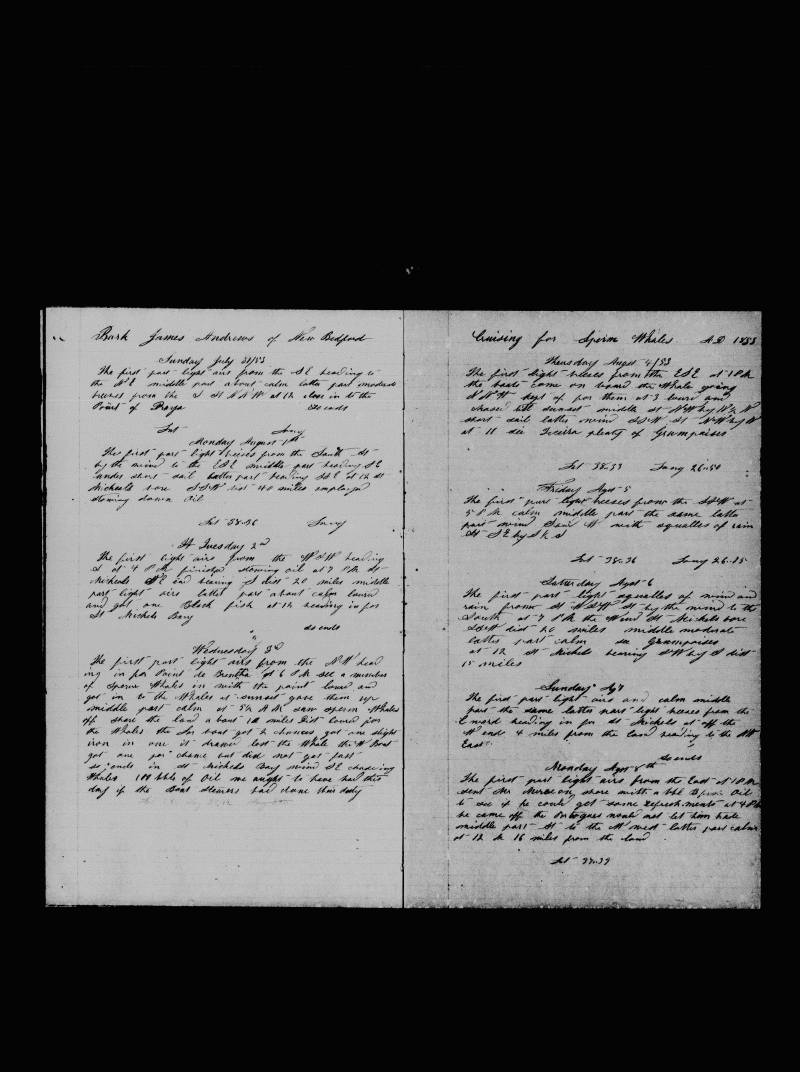 Bark James Andrews of New Bedford
Sunday July 31/53
The first part light airs from the SE heading to
the NE middle part about calm latter part moderate
breeses from the S St NNW at 12 close in to the
Point of Praya So ends
Lat Long
Monday August 1st
The first part light breeses from the South St
by the wind to the ESE middle part heading SE
under short sail latter part heading SSE at 12 St
Micheels bore SSW dist 40 miles employed
stowing down oil
Lat 38.36 Long
St Tuesday 2nd
The first light airs from the WSW heading
S at 4 PM finished stowing oil at 7 PM St
Micheels NE end bearing S dist 20 miles middle
part light airs latter part about calm lowered
and got one Black fish at 12 heading in for
St Michels Bay
so ends
Wednesday 3rd
The first part light airs from the NW head
ing in for Point de at 6 PM see a number
of Sperm Whales in with the point lowed and
got in to the Whales at sunset gave them up
middle part calm at 5½ AM saw sperm Whales
off shore the land about 10 miles Dist lowed for
the Whales the Lar boat got 2 chances got one slight
iron in one it drawed lost the Whale the W Boat
got one for chance but did not get fast
so ends in St Michels Bay wind SE chaseing
Whales 100 bbls of Oil we aught to have had this
day if the Boat steerers had done thair duty
Cruising for Sperm Whales AD 1853
Thursday Augst 4/53
The first light breeses from the ESE at 1 PM
the boats come on board the Whale going
NNW kept of for them at 3 lowed and
chased till sunset middle St NW by W½N
short sail latter wind SSW St NW by W
at 11 see Terceira plenty of Grampuises
Lat 38.53 Long 26.50
Friday Agst 5
The first part light breeses from the SSW at
5 PM calm middle part the same latter
part wind W with squalles of rain
St SE by S½S
Lat 38.36 Long 26.15
Satterday Agst 6
The first part light squalles of wind and
rain from St WSW St by the wind to the
South at 7 PM the West St Michels bore
SSW dist 20 miles middle moderate
latter part calm see Grampuises
at 12 St Michels bearing SW by S dist
15 miles
Sunday Ag 7
The first part light airs and calm middle
part the same latter part light breeses from the
E ward heading in for St Michels at off the
W end 4 miles from the land heading to the NW
East
so ends
Monday Agst 8th
The first part light airs from the East at 1 PM
sent Mr on shore with a bbl Sperm Oil
to see if he could get some refreshments at 4 PM
he came off the Portogues would not let him trade
middle part St to the N west latter part calm
at 12 M 16 miles from the land
Lat 37.39